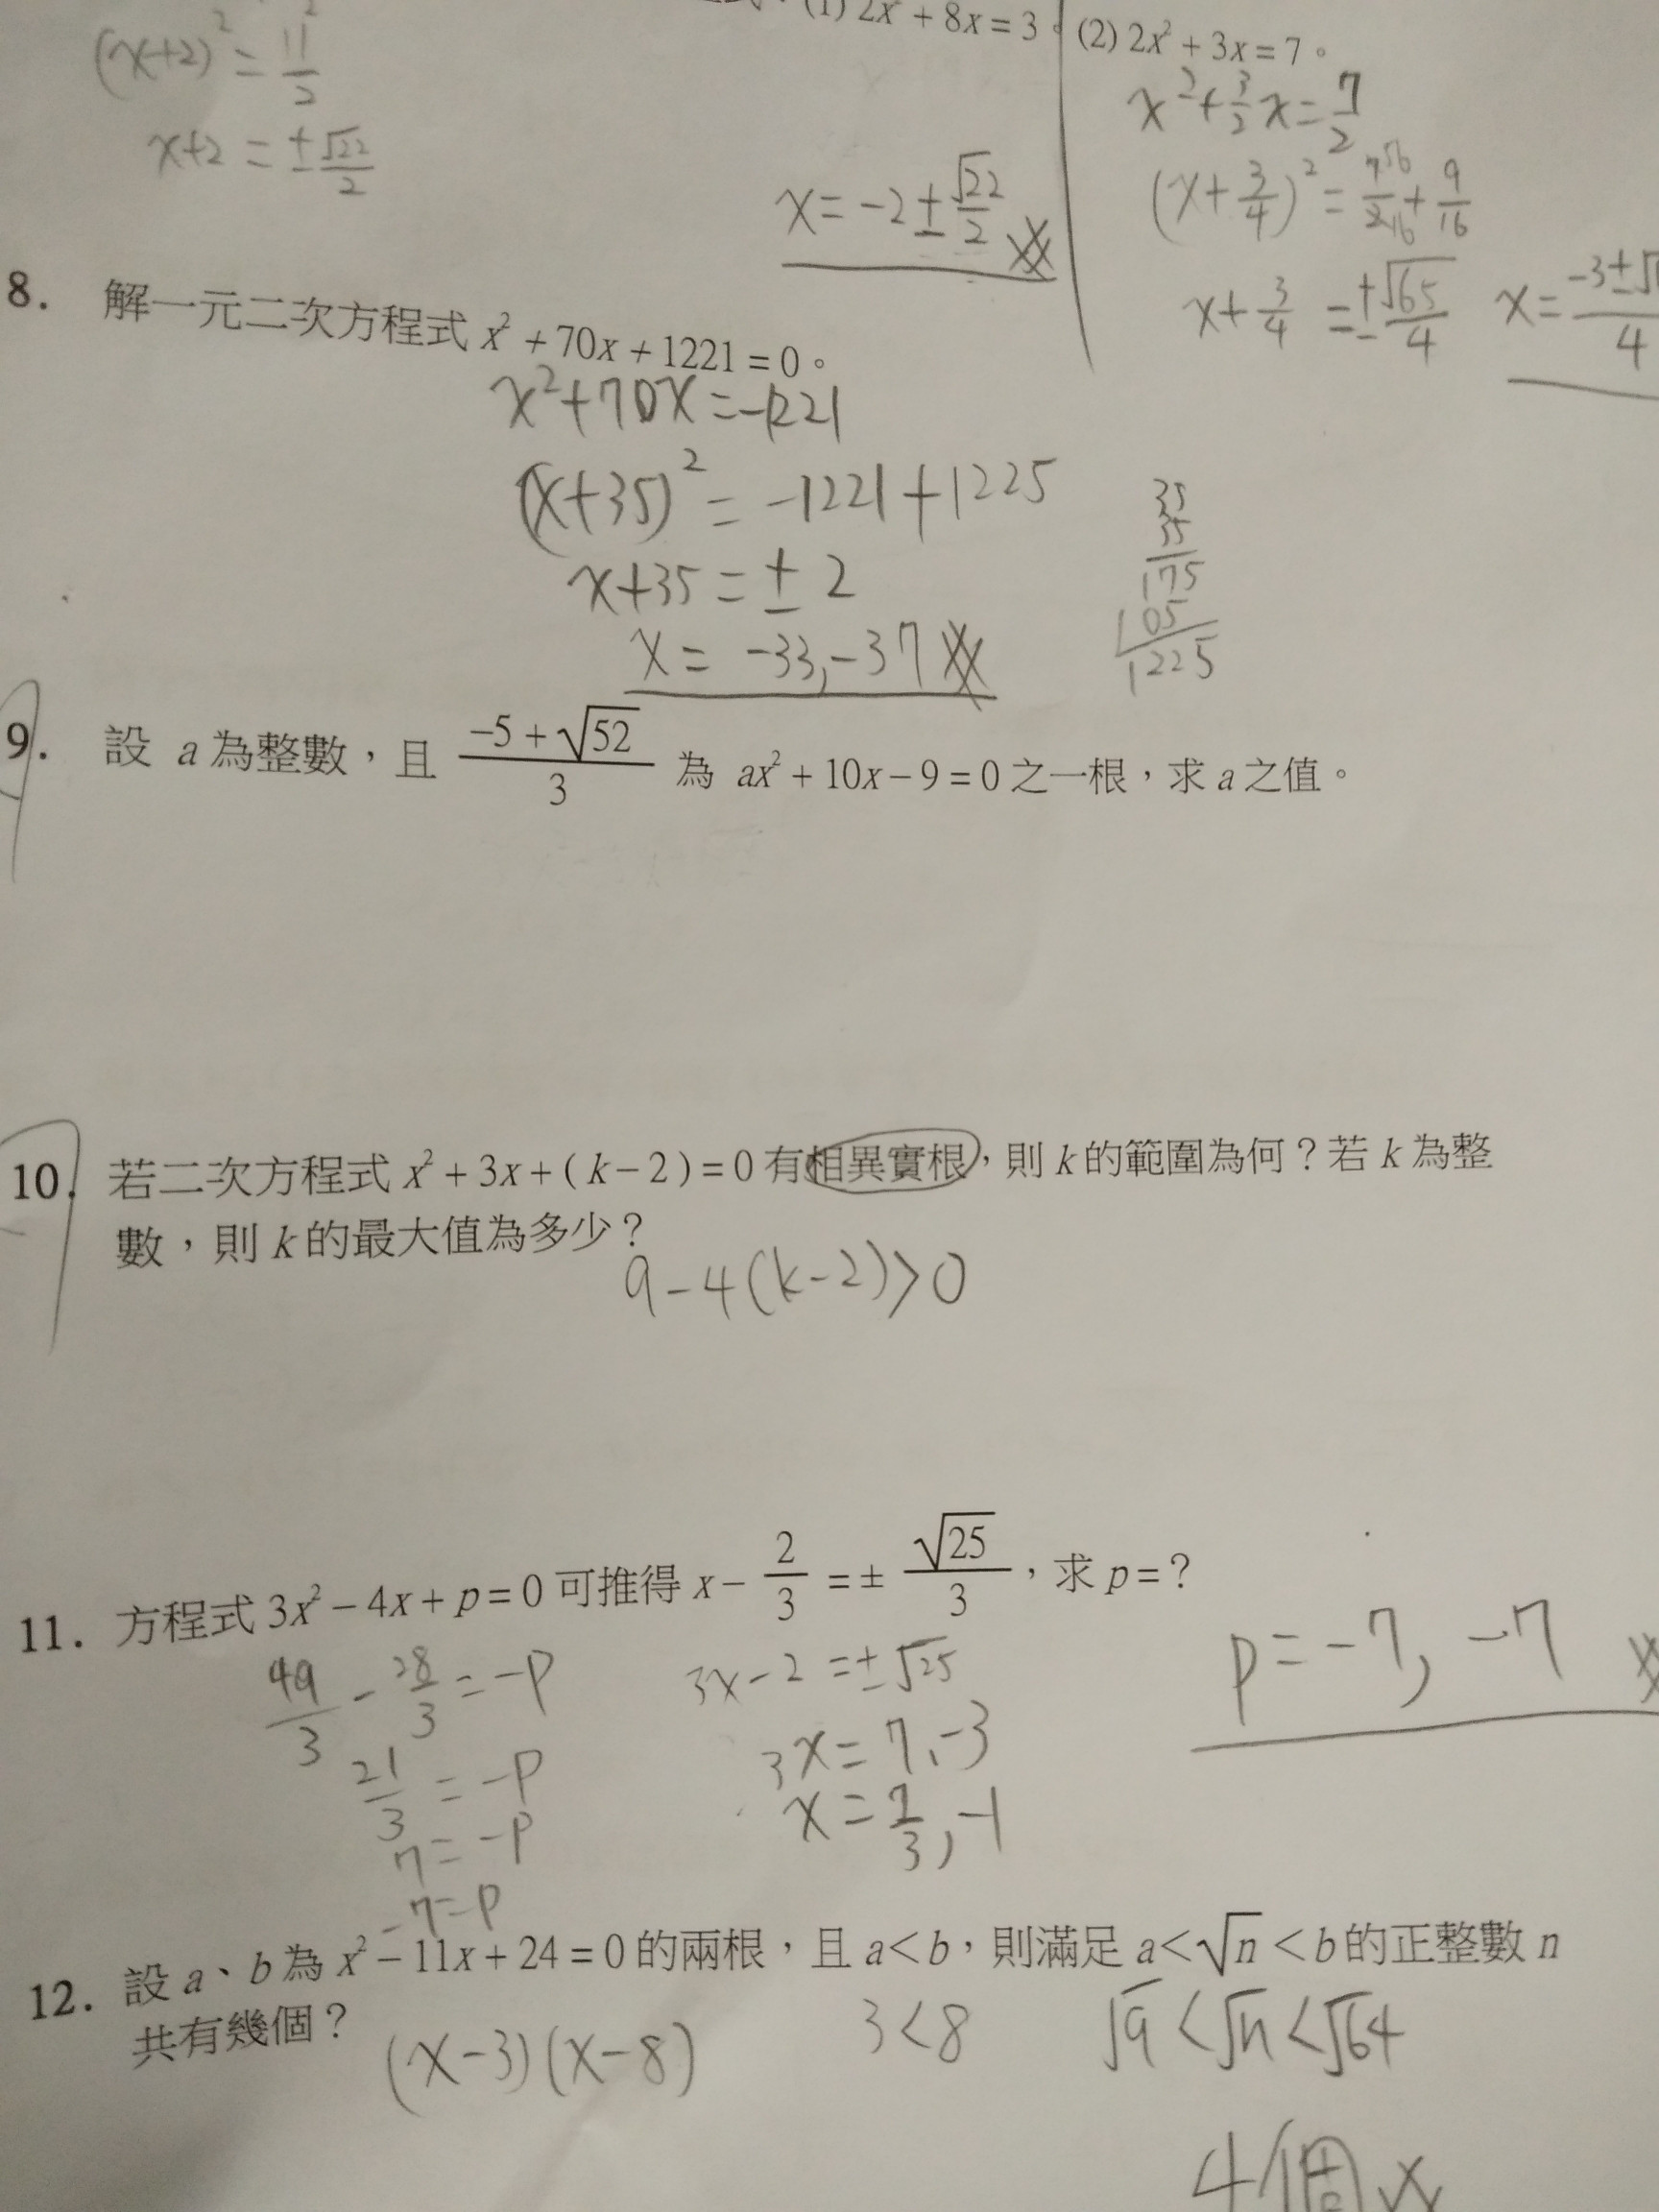 (1) 2x² + 8x = 3。 (2) 2x² + 3x = 7。
(x+2)² = 11/2
x+2 = ±√22/2
x = -2 ± √22/2
x² + 3/2 x = 7/2
(x + 3/4)² = 56/16 + 9/16
x + 3/4 = ±√65/4
8. 解一元二次方程式 x² + 70x + 1221 = 0。
x² + 70x = -1221
(x+35)² = -1221 + 1225
x+35 = ± 2
x = -33, -37
35
35
175
105
1225
9. 設 a 為整數，且 (-5 + √52)/3 為 ax² + 10x - 9 = 0 之一根，求 a 之值。
10. 若二次方程式 x² + 3x + ( k - 2 ) = 0 有相異實根，則 k 的範圍為何？若 k 為整
數，則 k 的最大值為多少？
9 - 4(k-2) > 0
11. 方程式 3x² - 4x + p = 0 可推得 x - 2/3 = ± √25/3，求 p = ？
49/3 - 28/3 = -p
21/3 = -p
7 = -p
-7 = p
3x - 2 = ±√25
3x = 7, -3
x = 7/3, -1
p = -7, -7
12. 設 a、b 為 x² - 11x + 24 = 0 的兩根，且 a < b，則滿足 a < √n < b 的正整數 n
共有幾個？
(x-3)(x-8)
3 < 8
√9 < √n < √64